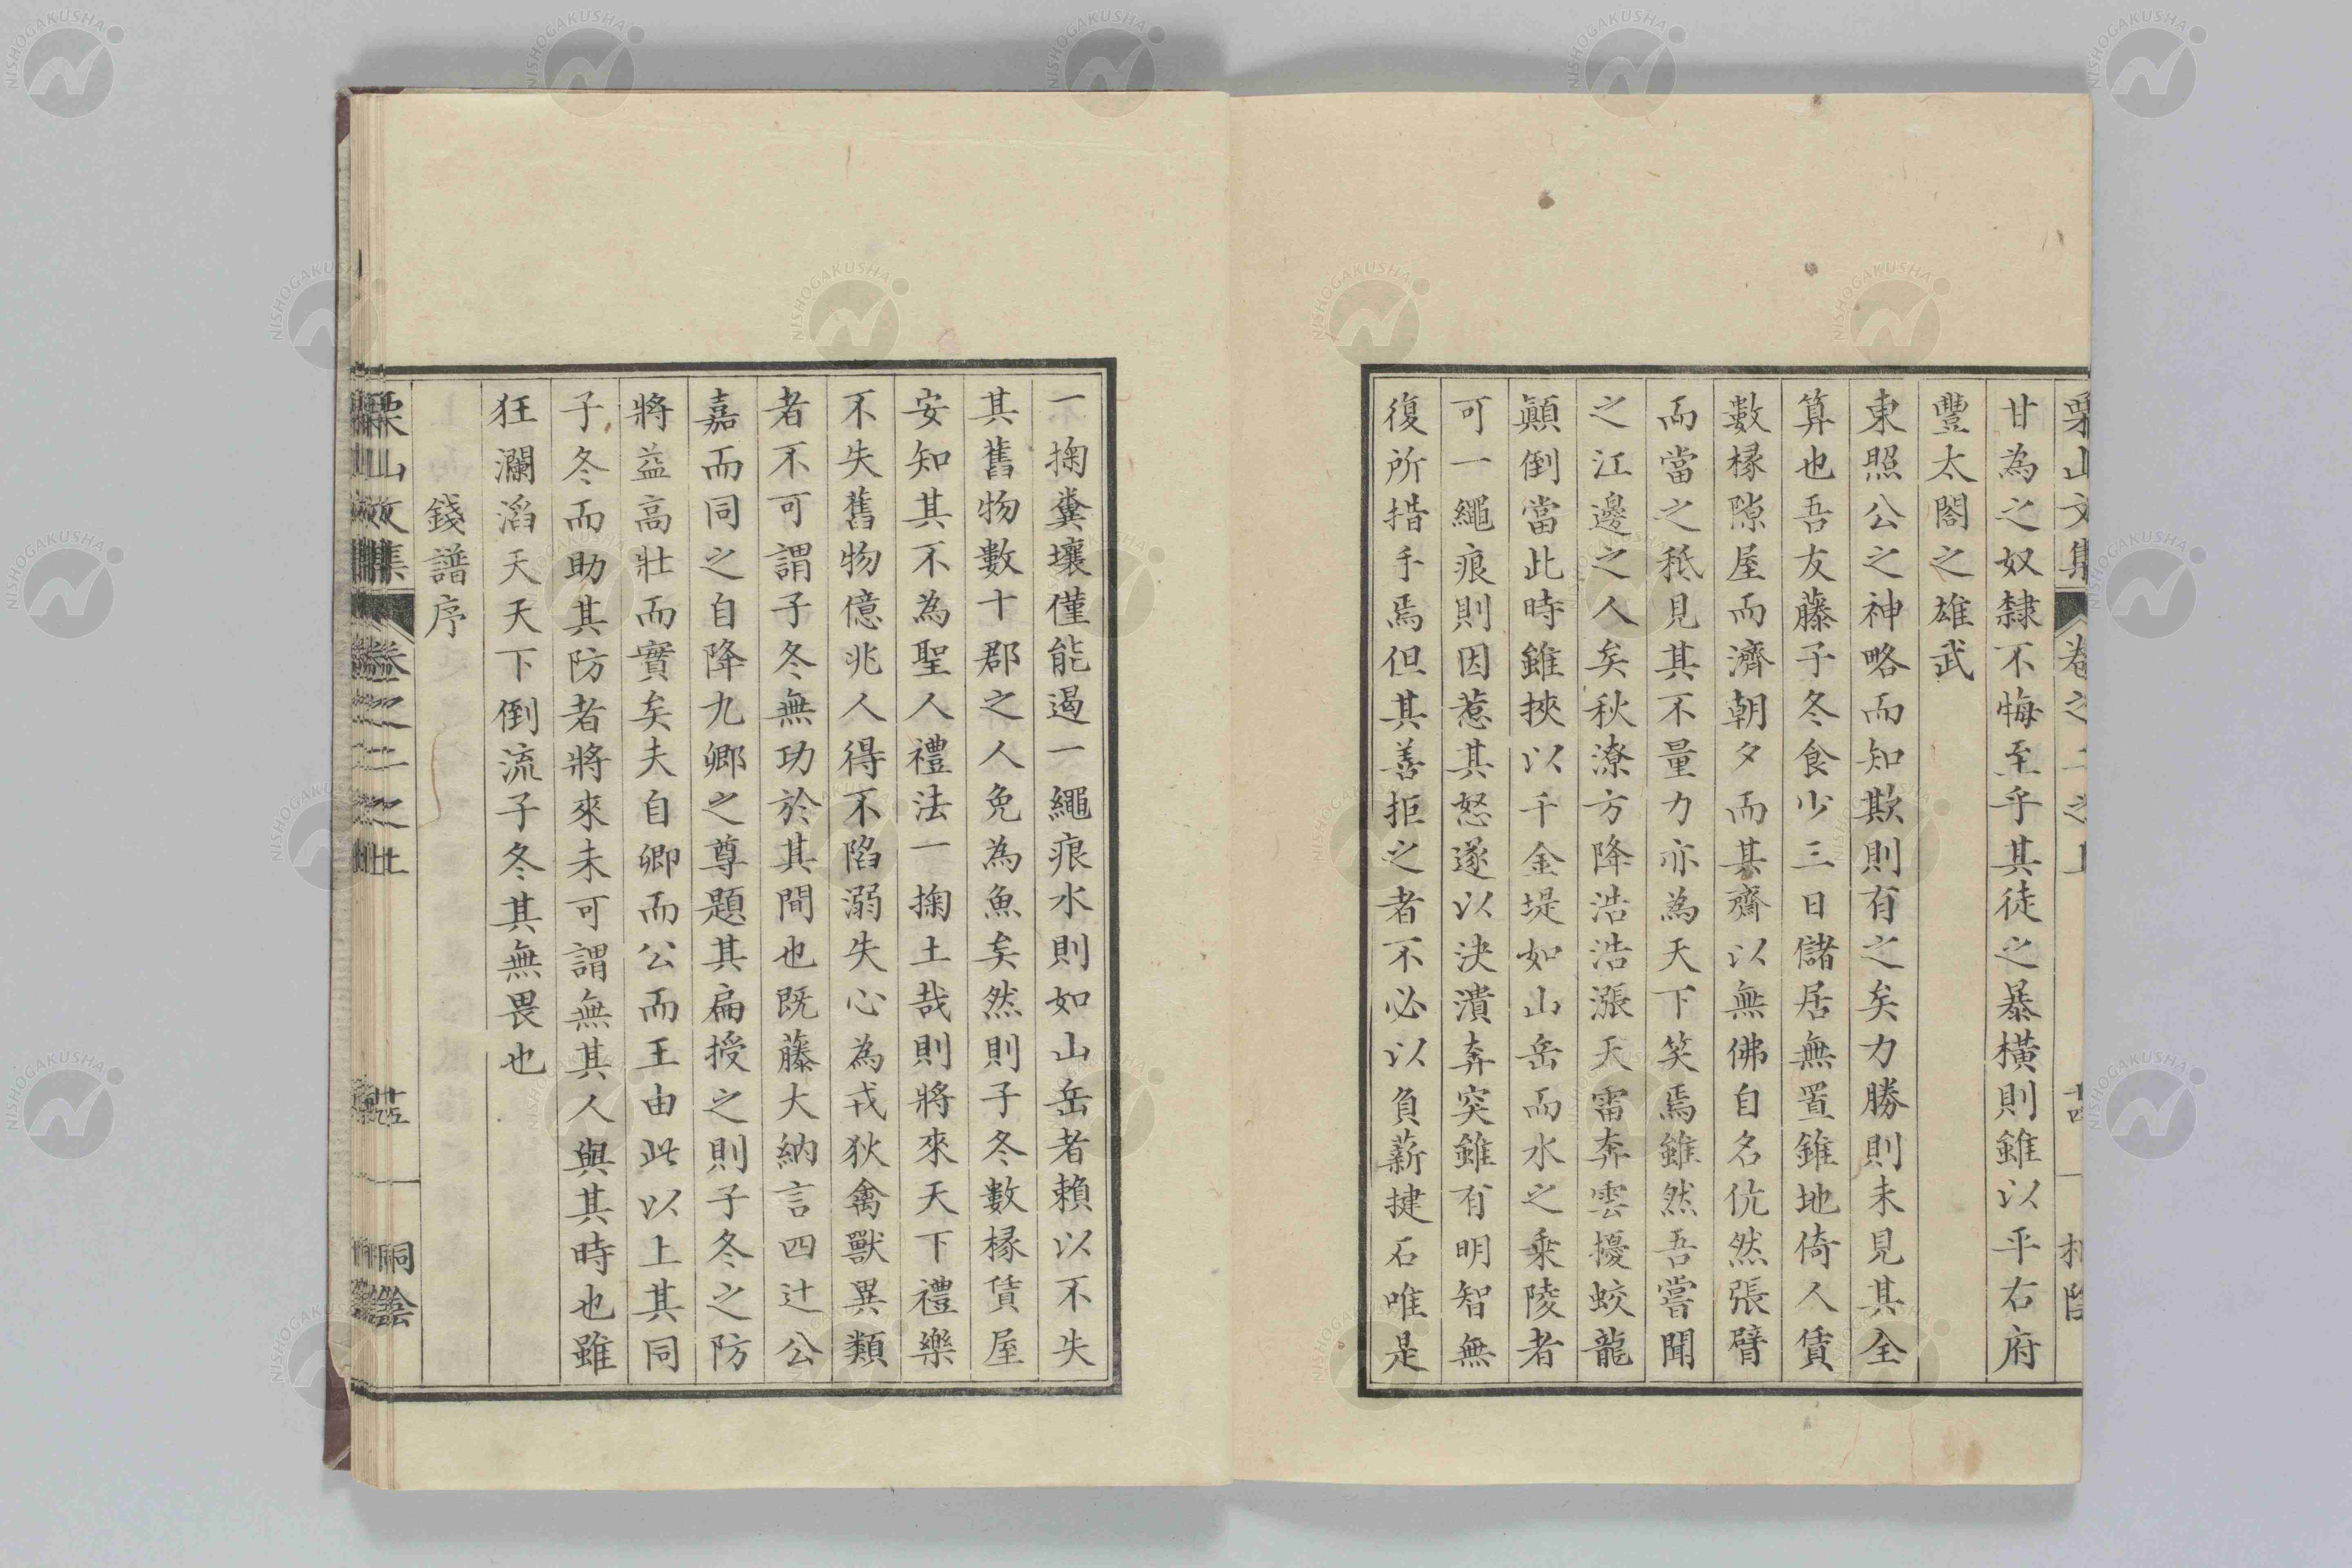 栗山文集 卷之二之上 十四 栖陰
甘為之奴隸不悔至乎其徒之暴橫則雖以平右府
豐太閤之雄武
東照公之神略而知欺則有之矣力勝則未見其全
算也吾友藤子冬食少三日儲居無置錐地倚人賃
數椽隙屋而濟朝夕而其齋以無佛自名伉然張臂
而當之秪見其不量力亦為天下笑焉雖然吾嘗聞
之江邊之人矣秋潦方降浩浩漲天雷奔雲擾蛟龍
顛倒當此時雖挾以千金堤如山岳而水之乘陵者
可一繩痕則因惹其怒遂以決潰奔突雖有明智無
復所措手焉但其善拒之者不必以負薪揵石唯是
一掬糞壤僅能遏一繩痕水則如山岳者賴以不失
其舊物數十郡之人免為魚矣然則子冬數椽賃屋
安知其不為聖人禮法一掬土哉則將來天下禮樂
不失舊物億兆人得不陷溺失心為戎狄禽獸異類
者不可謂子冬無功於其間也既藤大納言四辻公
嘉而同之自降九卿之尊題其扁授之則子冬之防
將益高壯而實矣夫自卿而公而王由此以上其同
子冬而助其防者將來未可謂無其人與其時也雖
狂瀾滔天天下倒流子冬其無畏也
錢譜序
栗山文集 卷之二之上 十五
NISHOGAKUSHA